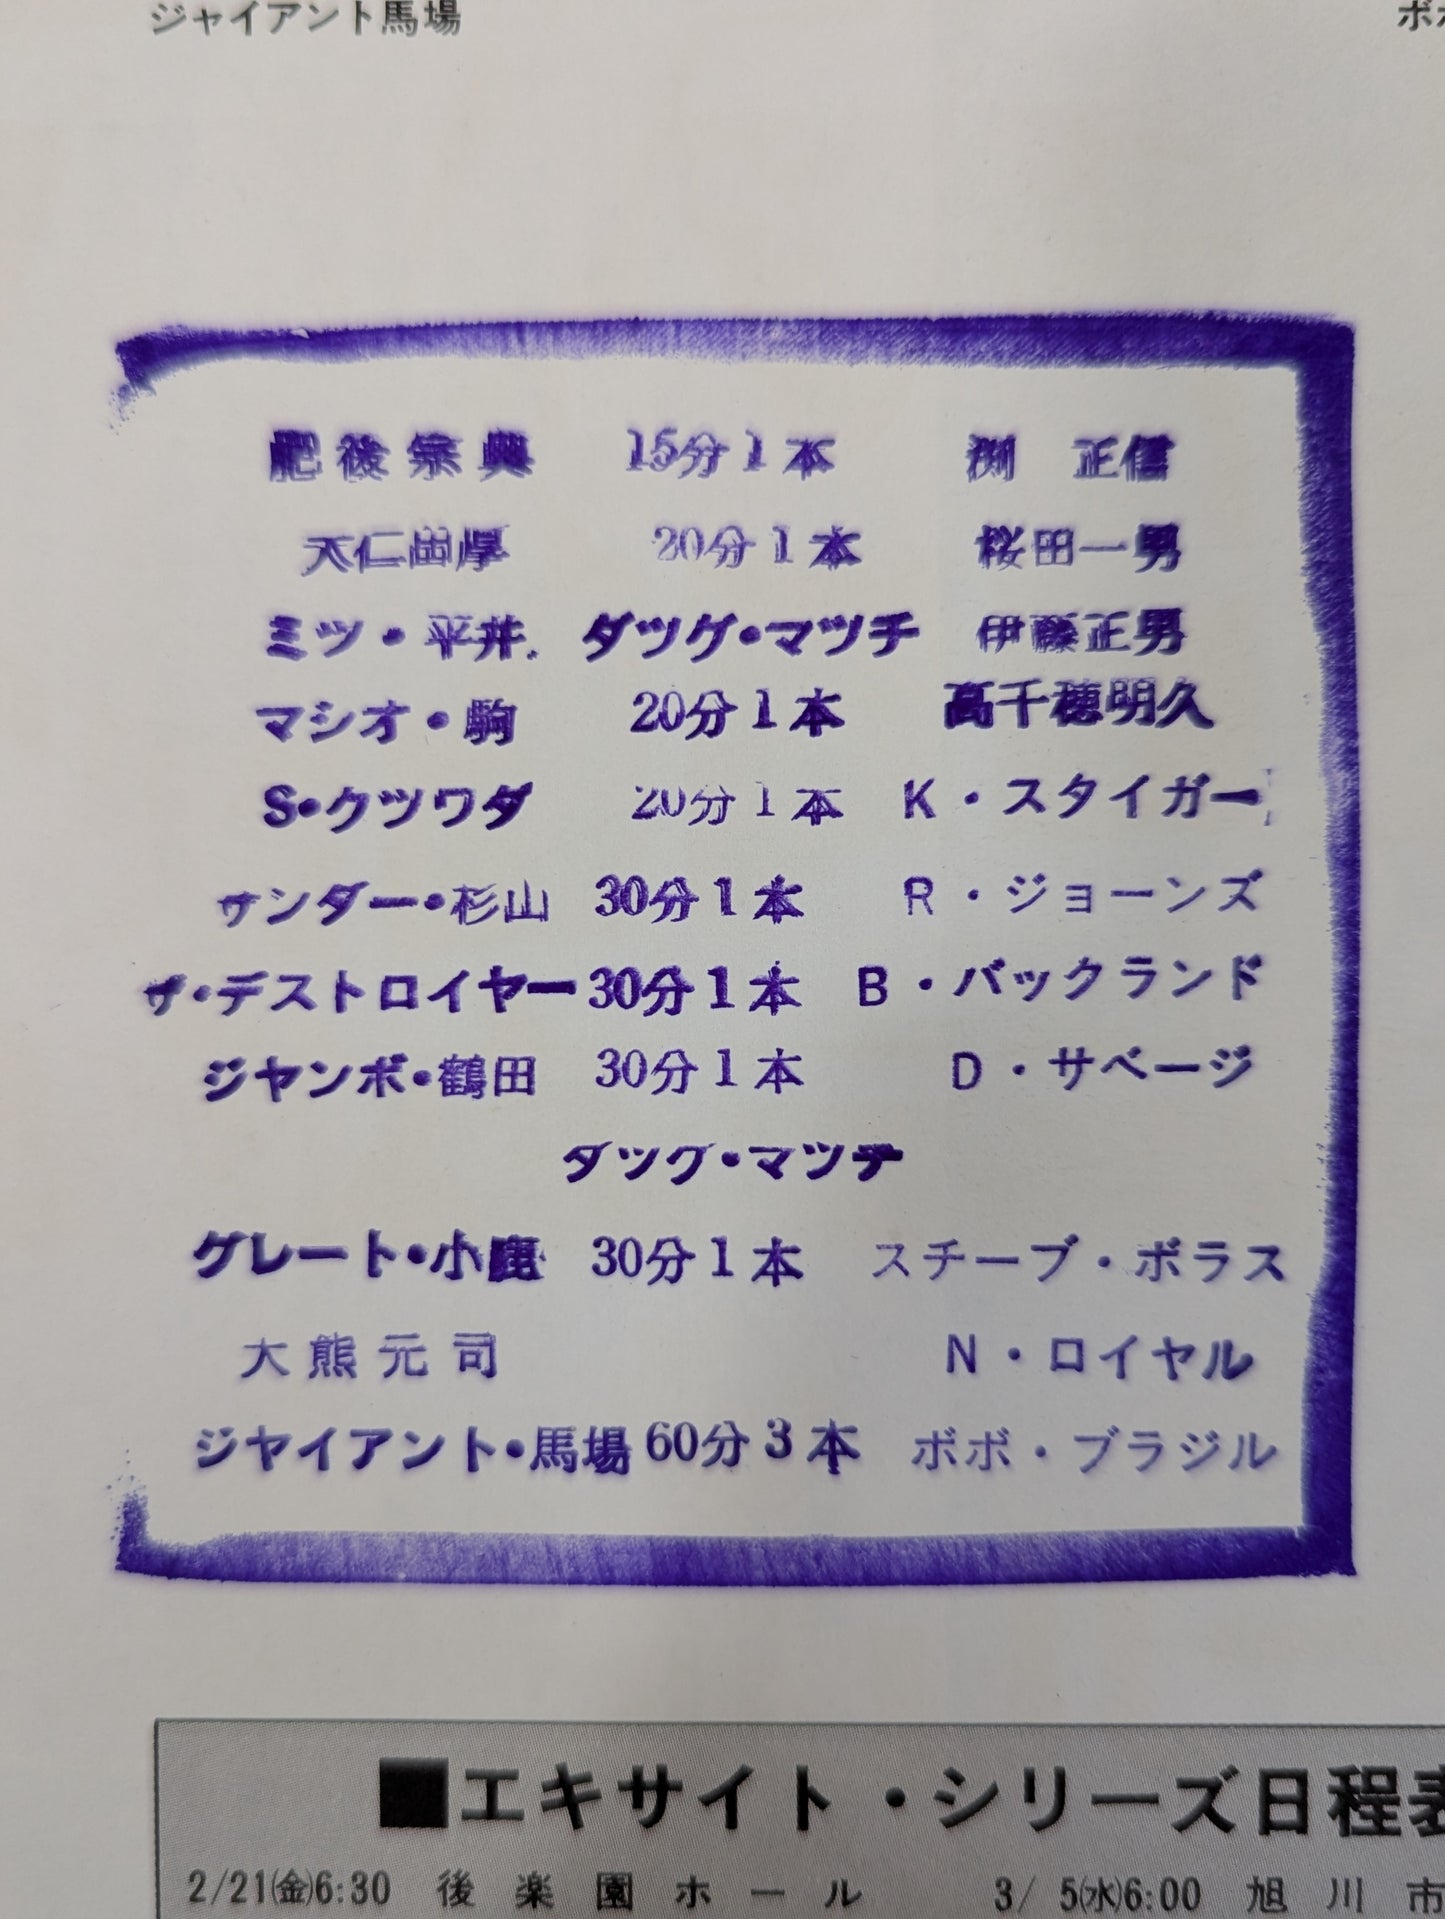 ジャイアント馬場 ボボ
肥後宗典 15分1本 渕 正信
大仁田厚 20分1本 桜田一男
ミツ・平井. ダツグ・マツチ 伊藤正男
マシオ・駒 20分1本 高千穂明久
S・クツワダ 20分1本 K・スタイガー
サンダー・杉山 30分1本 R・ジョーンズ
ザ・デストロイヤー 30分1本 B・バックランド
ジヤンボ・鶴田 30分1本 D・サベージ
ダツグ・マツチ
グレート・小鹿 30分1本 スチーブ・ボラス
大熊元司 N・ロイヤル
ジヤイアント・馬場 60分3本 ボボ・ブラジル
■エキサイト・シリーズ日程表
2/21㈮6:30 後楽園ホール 3/ 5㈬6:00 旭川市